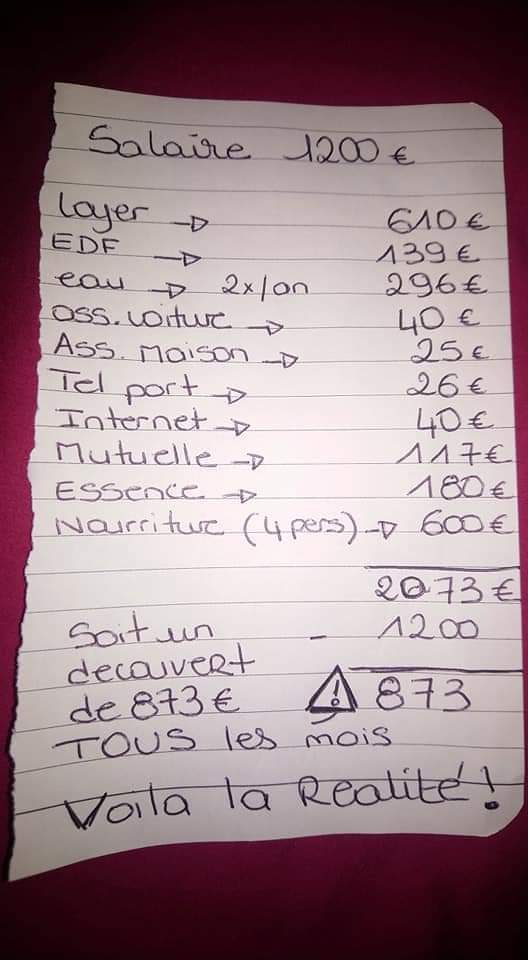 Salaire 1200 €
Loyer → 610 €
EDF → 139 €
eau → 2x/an 296 €
ass. voiture → 40 €
Ass. Maison → 25 €
Tel port → 26 €
Internet → 40 €
Mutuelle → 117 €
Essence → 180 €
Nourriture (4 pers) → 600 €
2073 €
Soit un - 1200
decouvert
de 873 € ⚠ 873
TOUS les mois
Voila la Realité !